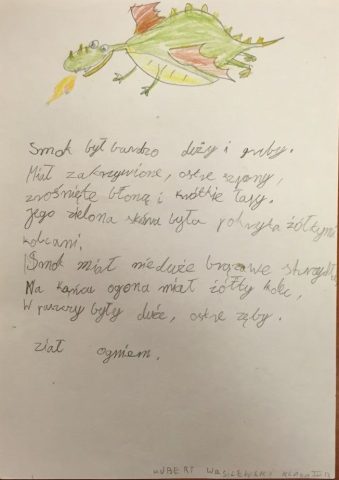 Smok był bardzo duży i gruby.
Miał zakrzywione, ostre szpony,
zrośnięte błoną i krótkie łapy.
Jego zielona skóra była pokryta żółtymi
kolcami,
Smok miał nieduże brązowe skrzydła
Na końcu ogona miał żółty kolc,
W paszczy były duże, ostre zęby.
ział ogniem.
HUBERT WASILEWSKI KLASA